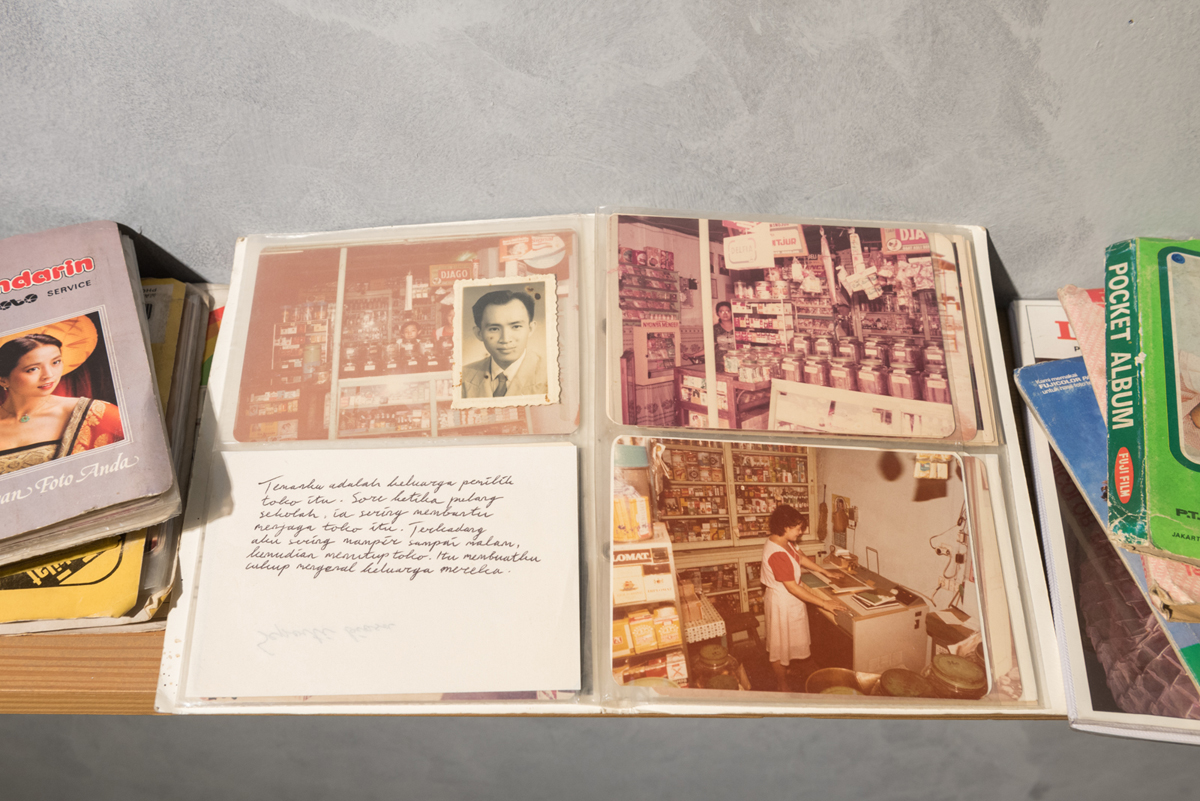 ndarin
SERVICE
an Foto Anda
DJAGO
TJUR
DJA
Temanku adalah keluarga pemilik
toko itu. Sore ketika pulang
sekolah, ia sering membantu
menjaga toko itu. Terkadang
aku sering mampir sampai malam,
kemudian menutup toko. Itu membuatku
cukup mengenal keluarga mereka.
LOMAT
POCKET ALBUM
FUJI FILM
Kami memakai
FUJICOLOR PA
P.T.
JAKAR